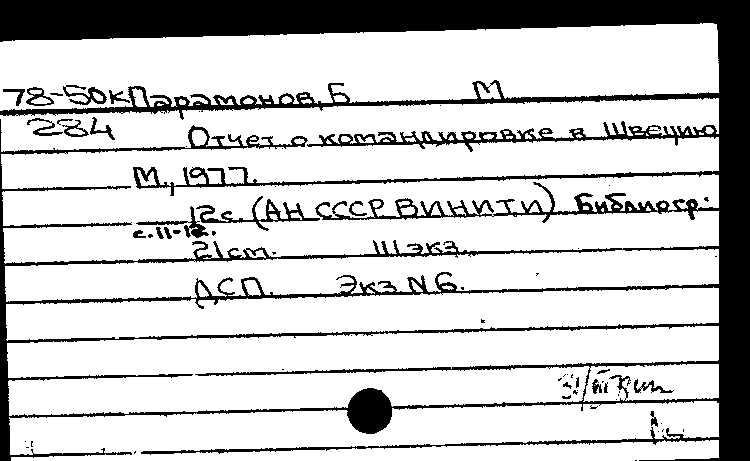 78-50к Парамонов, Б М
284 Отчет о командировке в Швецию
М., 1977.
12с. (АН СССР ВИНИТИ) Библиогр:
с.11-12.
21 ст. 111 экз.
ДСП. Экз N 6.